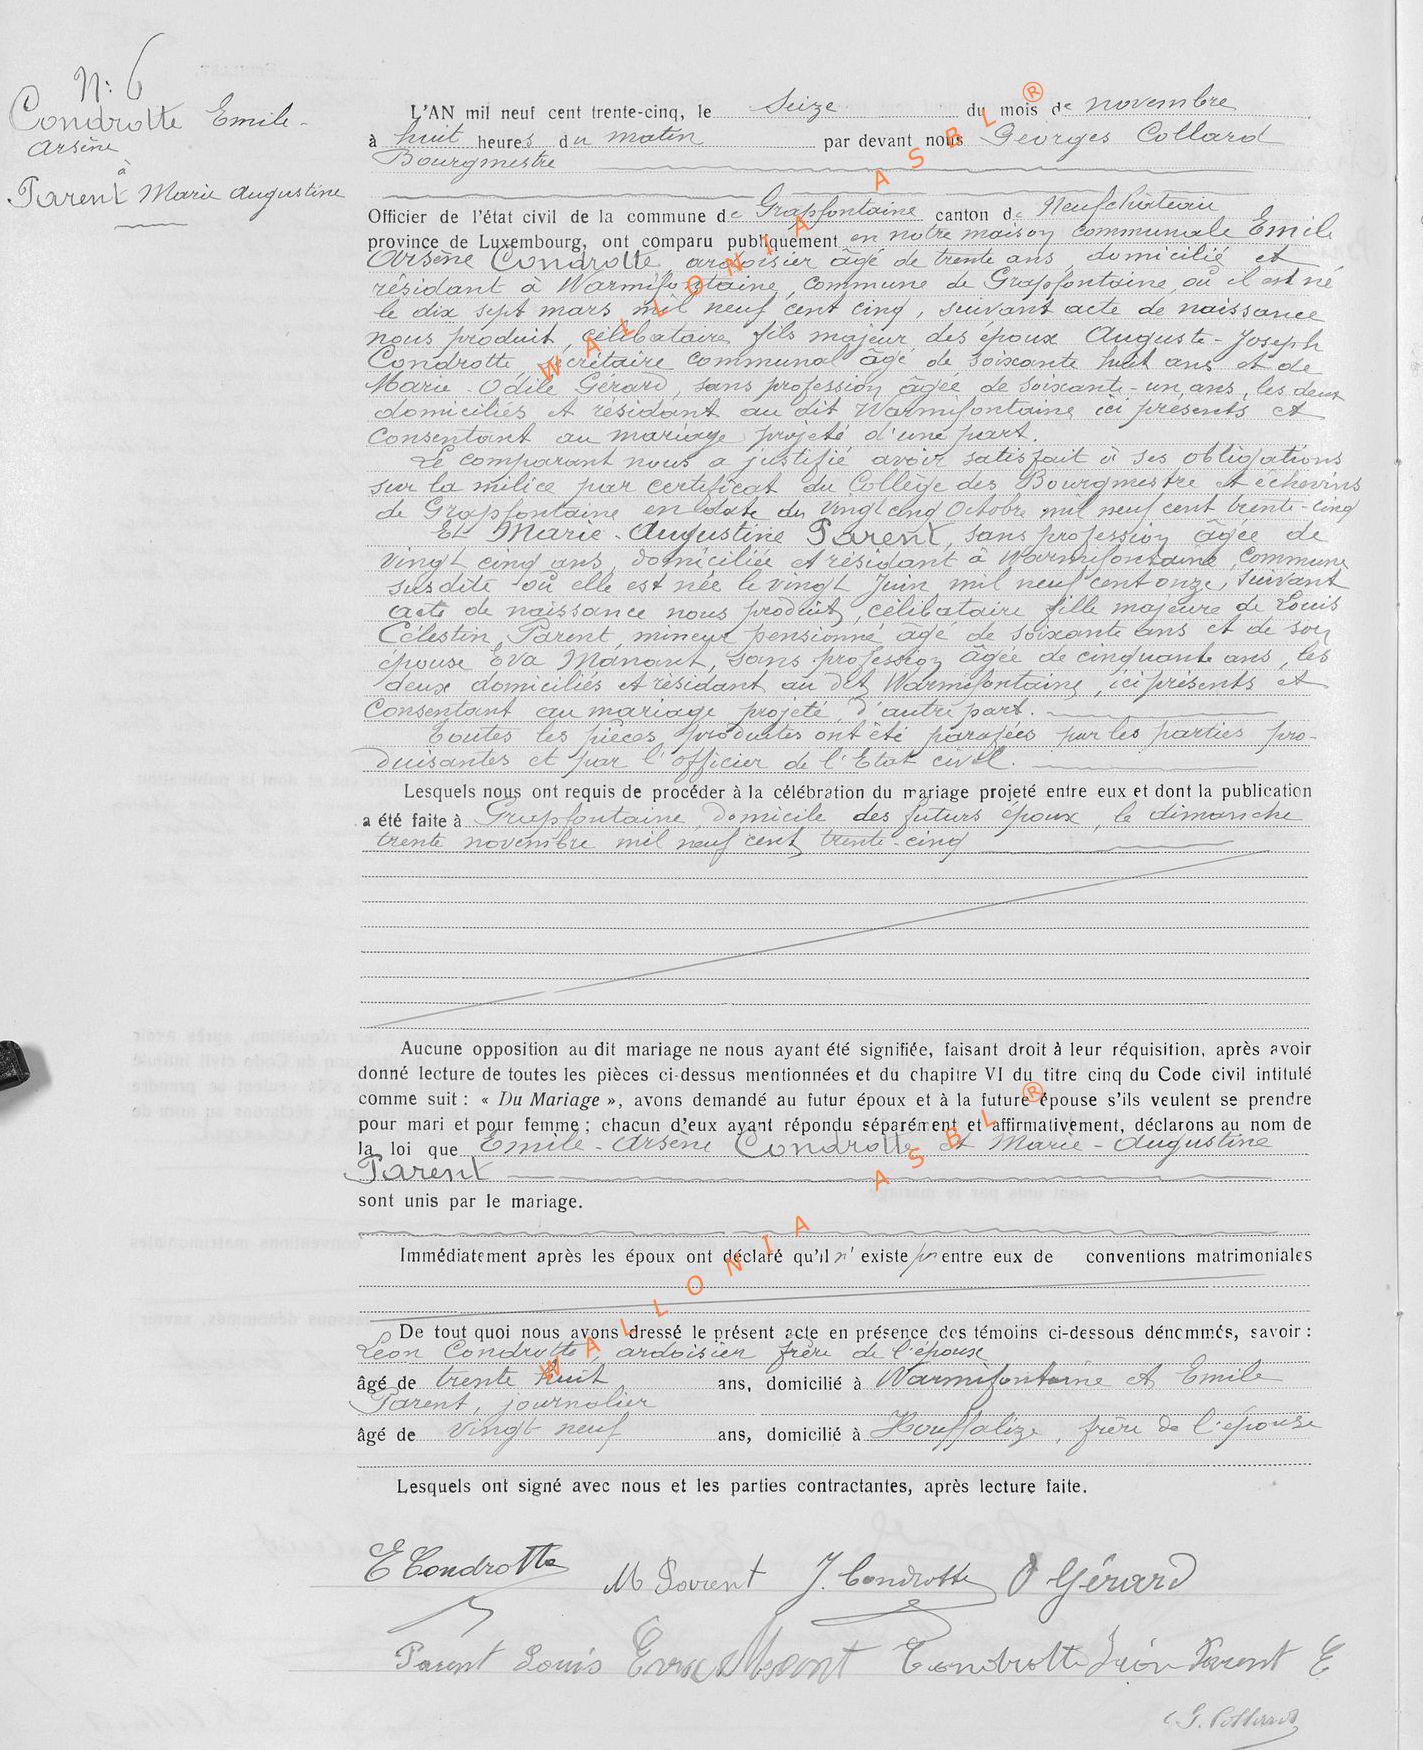 N: 6
Condrotte Emile-
Arsène
à
Parent Marie Augustine
L'AN mil neuf cent trente-cinq, le Seize du mois de novembre
à huit heures du matin par devant nous Georges Collard
Bourgmestre
Officier de l'état civil de la commune de Grapfontaine canton de Neufchâteau
province de Luxembourg, ont comparu publiquement en notre maison communale Emile
Arsène Condrotte ardoisier âgé de trente ans, domicilié et
résidant à Warmifontaine, commune de Grapfontaine, où il est né
le dix sept mars mil neuf cent cinq, suivant acte de naissance
nous produit, célibataire fils majeur des époux Auguste-Joseph
Condrotte, secrétaire communal âgé de soixante huit ans et de
Marie-Odile Gérard, sans profession âgée de soixante-un ans, les deux
domiciliés et résidant au dit Warmifontaine ici présents et
consentant au mariage projeté d'une part.
Le comparant nous a justifié avoir satisfait à ses obligations
sur la milice par certificat du Collège des Bourgmestre et échevins
de Grapfontaine en date du vingt cinq Octobre mil neuf cent trente-cinq
Et Marie-Augustine Parent, sans profession âgée de
vingt cinq ans, domiciliée et résidant à Warmifontaine, commune
susdite où elle est née le vingt Juin mil neuf cent onze, suivant
acte de naissance nous produit, célibataire fille majeure de Louis
Célestin Parent, mineur pensionné âgé de soixante ans et de son
épouse Eva Manant, sans profession âgée de cinquante ans, les
deux domiciliés et résidant au dit Warmifontaine, ici présents et
consentant au mariage projeté, d'autre part.
Toutes les pièces produites ont été parafées par les parties pro-
duisantes et par l'officier de l'Etat civil.
Lesquels nous ont requis de procéder à la célébration du mariage projeté entre eux et dont la publication
a été faite à Grapfontaine, domicile des futurs époux, le dimanche
trente novembre mil neuf cent trente-cinq
Aucune opposition au dit mariage ne nous ayant été signifiée, faisant droit à leur réquisition, après avoir
donné lecture de toutes les pièces ci-dessus mentionnées et du chapitre VI du titre cinq du Code civil intitulé
comme suit : « Du Mariage », avons demandé au futur époux et à la future épouse s'ils veulent se prendre
pour mari et pour femme ; chacun d'eux ayant répondu séparément et affirmativement, déclarons au nom de
la loi que Emile-Arsène Condrotte et Marie-Augustine
Parent
sont unis par le mariage.
Immédiatement après les époux ont déclaré qu'il n'existe pas entre eux de conventions matrimoniales
De tout quoi nous avons dressé le présent acte en présence des témoins ci-dessous dénommés, savoir :
Léon Condrotte, ardoisier frère de l'époux
âgé de trente huit ans, domicilié à Warmifontaine et Emile
Parent, journalier
âgé de vingt neuf ans, domicilié à Houffalize, frère de l'épouse
Lesquels ont signé avec nous et les parties contractantes, après lecture faite.
E Condrotte M Parent J. Condrotte O Gérard
Parent Louis Eva Manant Condrotte Léon Parent E
G. Collard
WALLONIA ASBL ®
WALLONIA ASBL ®